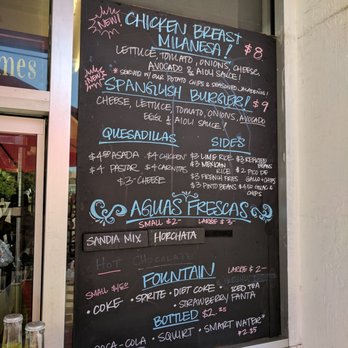 NEW!
CHICKEN BREAST
MILANESA! $8
LETTUCE, TOMATO, ONIONS, CHEESE,
AVOCADO & AIOLI SAUCE!
* SERVED W/ OUR POTATO CHIPS & SEASONED JALAPEÑOS!
SPANGLISH BURGER! $9
CHEESE, LETTUCE, TOMATO, ONIONS, AVOCADO
EGG & AIOLI SAUCE!
mes
QUESADILLAS
SIDES
ASADA $4 CHICKEN
$4 PASTOR $4 CARNITAS
$3 CHEESE
$3 LIME RICE
$3 MEXICAN
RICE
$3 FRENCH FRIES
$3 PINTO BEANS
BEANS
$2 PICO DE
GALLO & CHIPS
CHIPS
AGUAS FRESCAS
SMALL $2- LARGE $3-
SANDIA MIX HORCHATA
HOT CHOCOLATE
FOUNTAIN
SMALL LARGE $2-
• COKE • SPRITE • DIET COKE • ICED TEA
• STRAWBERRY FANTA
BOTTLED $2.25
COCA-COLA • SQUIRT • SMART WATER